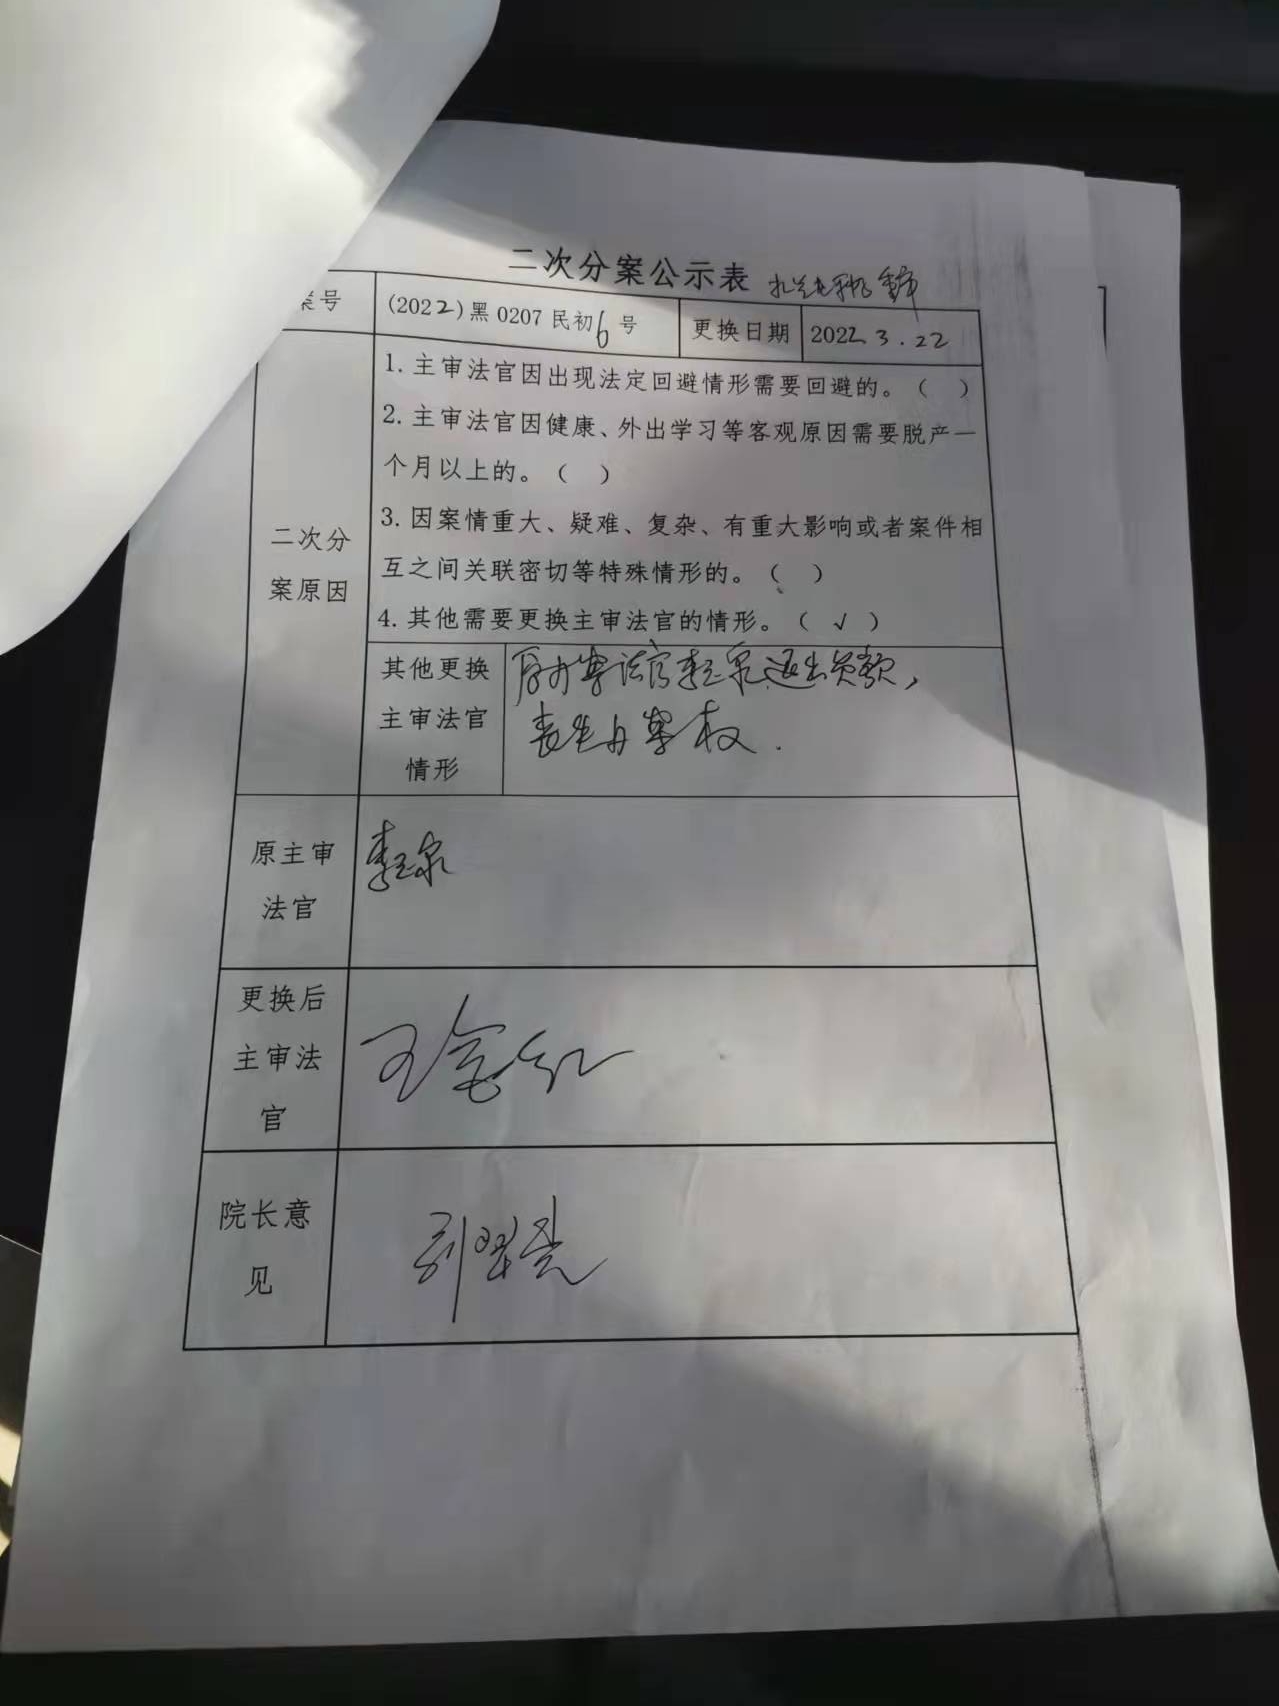 二次分案公示表
案号
(2022)黑0207民初6号
更换日期
2022.3.22
二次分
案原因
1.主审法官因出现法定回避情形需要回避的。（ ）
2.主审法官因健康、外出学习等客观原因需要脱产一
个月以上的。（ ）
3.因案情重大、疑难、复杂、有重大影响或者案件相
互之间关联密切等特殊情形的。（ ）
4.其他需要更换主审法官的情形。（√）
其他更换
主审法官
情形
原办案法官李玉泉退出员额，
丧失办案权.
原主审
法官
李玉泉
更换后
主审法
官
院长意
见